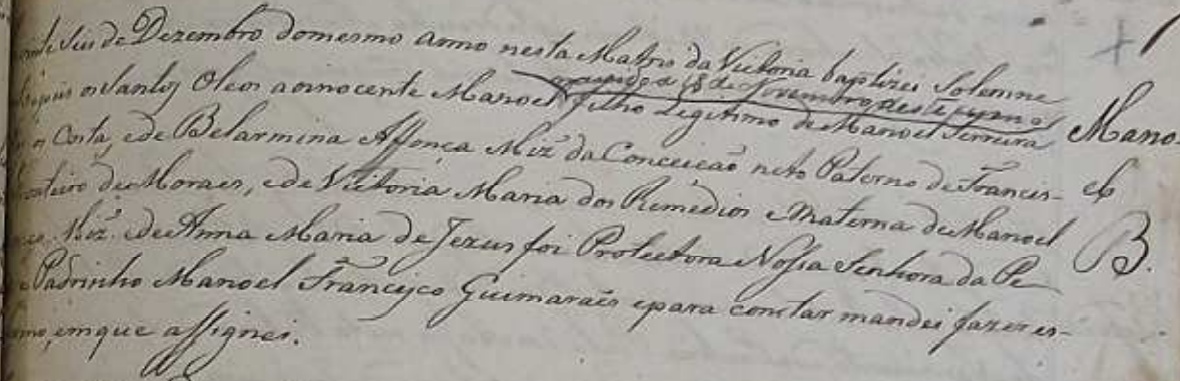 Seis de Dezembro do mesmo anno nesta Matris da Victoria baptizei Solemne
nascido a 18 de Novembro deste
os Santos Oleos ao innocente Manoel filho Legitimo de Manoel Ferreira
Costa, e de Belarmina Affonça Miz̃ da Conceicaõ neto Paterno de Francis-
de Moraes, e de Victoria Maria dos Remedios e Materna de Manoel
Miz̃. e de Anna Maria de Jezus foi Protectora Nossa Senhora da Pe
Padrinho Manoel Francisco Guimaraẽs e para constar mandei fazer es-
em que assignei.
Mano-
el
B.